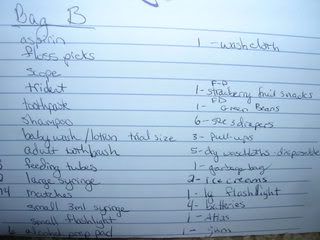 Bag B
aspirin
floss picks
scope
trident
toothpaste
shampoo
baby wash / lotion trial size
adult toothbrush
feeding tubes
2 large syringe
matches
small 3ml syringe
small flashlight
alcohol prep pad
1 - washcloth
F-D
1 - strawberry fruit snacks
FD
1 - Green Beans
6 - diapers
3 - pull-ups
5 - dry washcloths - disposable
1 - garbage bag
2 - ice creams
1 - flashlight
4 - Batteries
1 -
1 -